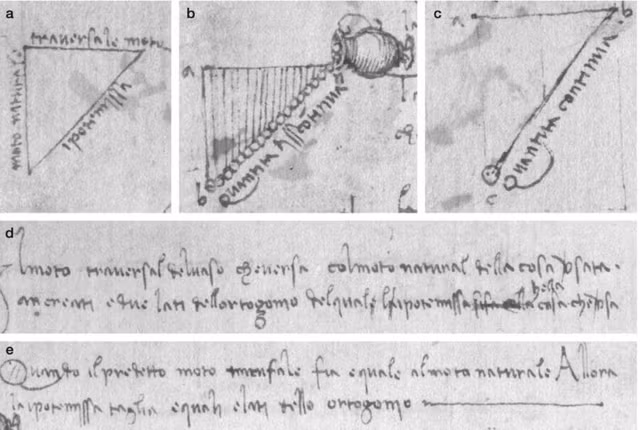 a
traversale moto
moto natura
ipotemissa
b
a
b
Quantita discontinua
c
a
b
c
Quantita continua
d
Il moto traversal del vaso che versa col moto natural della cosa versata
an creati e due lati dell ortogonio del quale l ipotemissa
nella cosa che posa
e
Quando il predetto moto fia equale al moto naturale Allora
la ipotemissa taglia equali e lati dello ortogonio